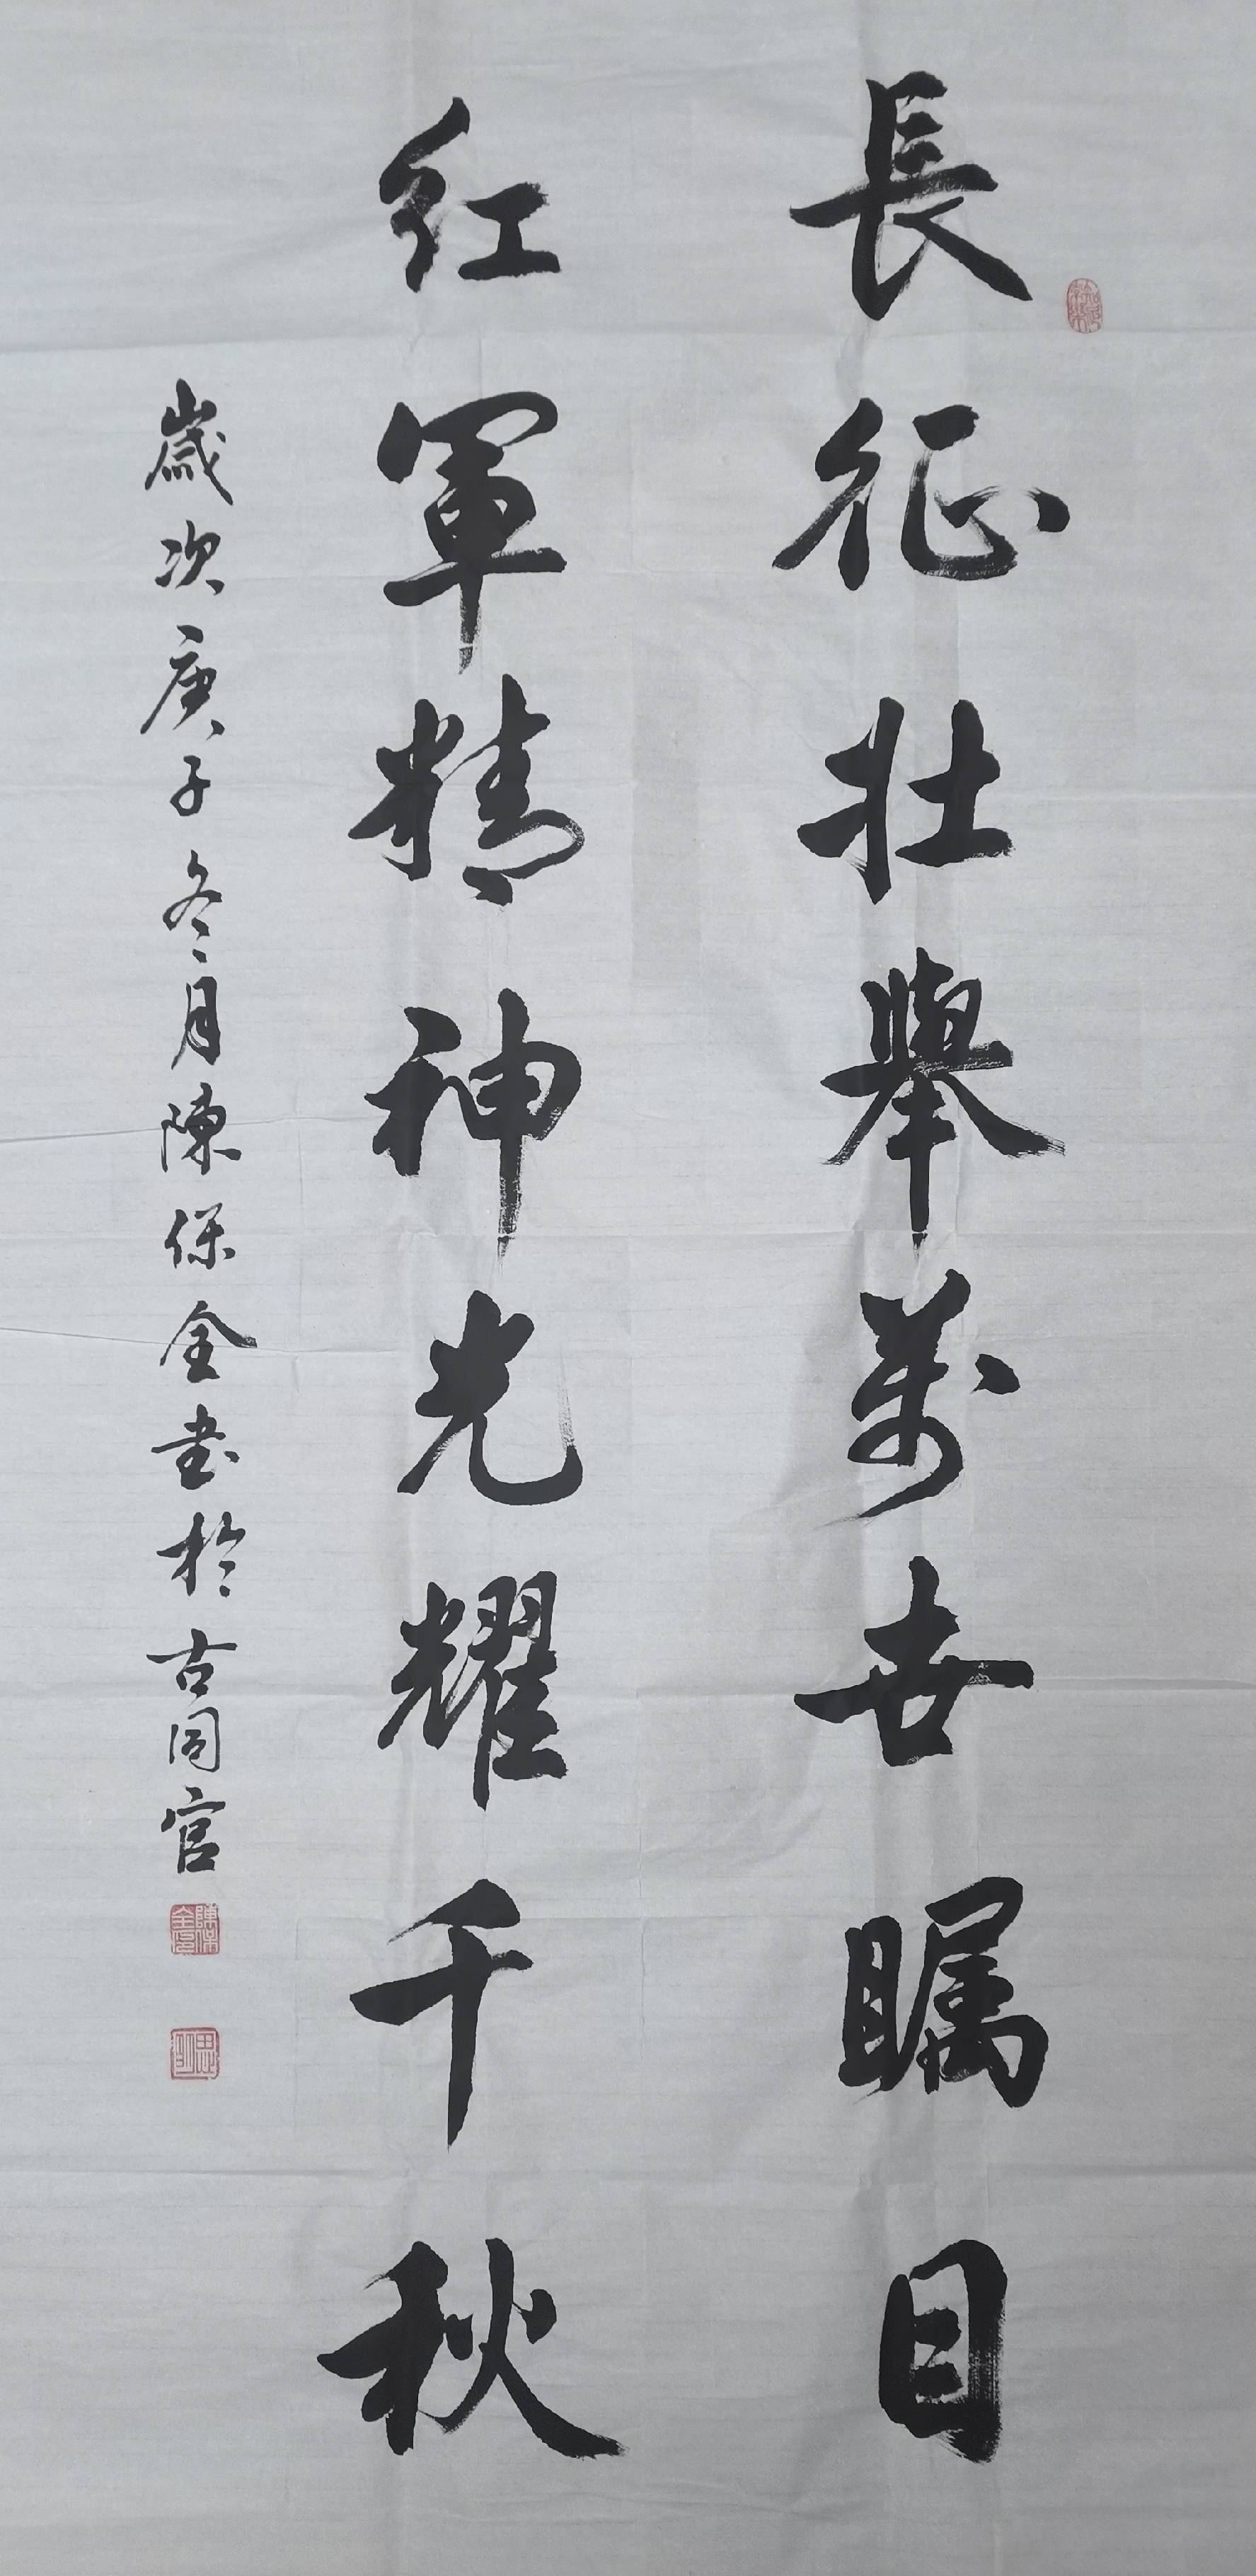 長征壯舉萬世瞩目
红軍精神光耀千秋
歲次庚子冬月陳保全書於古同官
陳保全印